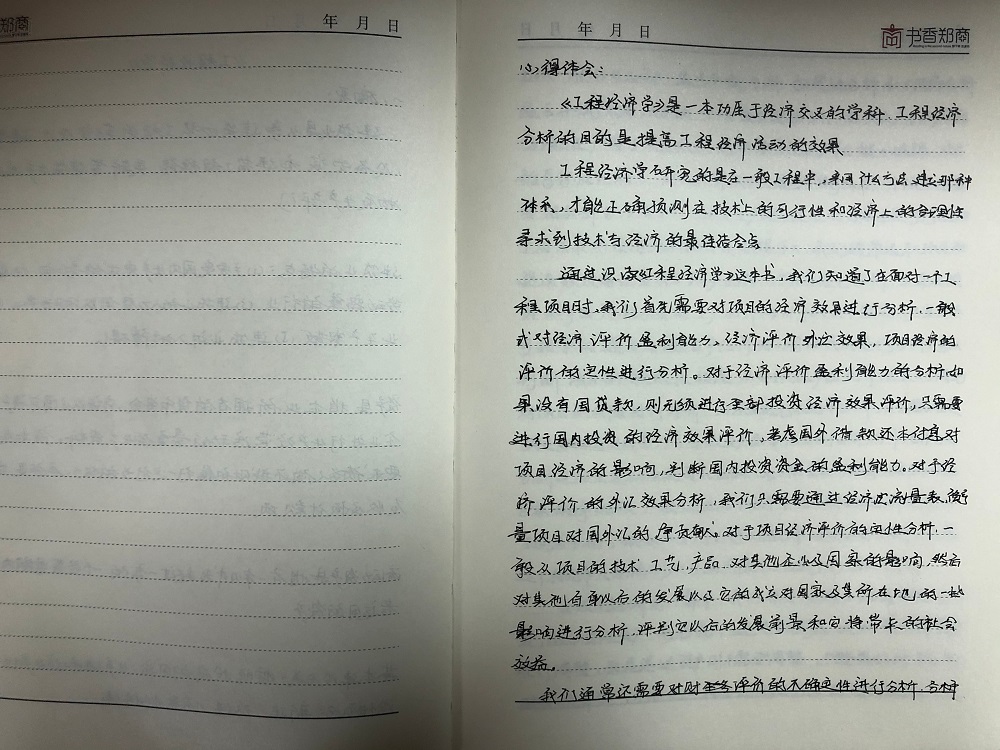 郑商
年 月 日
年 月 日
书香郑商
心得体会：
《工程经济学》是一本功属于经济交叉的学科，工程经济
分析的目的是提高工程经济活动的效果
工程经济学研究的是在一般工程中，采用什么方法，建立那种
体系，才能正确预测在技术上的可行性和经济上的合理性
寻求到技术与经济的最佳结合点
通过识读《工程经济学》这本书，我们知道了在面对一个工
程项目时，我们首先需要对项目的经济效果进行分析，一般
式对经济评价盈利能力、经济评价外汇效果，项目经济的
评价的定性进行分析。对于经济评价盈利能力的分析，如
果没有国贷款，则无须进行全部投资经济效果评价，只需要
进行国内投资的经济效果评价，考虑国外借款还本付息对
项目经济的影响，判断国内投资资金的盈利能力。对于经
济评价的外汇效果分析，我们只需要通过经济流量表，衡
量项目对国外汇的净贡献。对于项目经济评价的定性分析，一
般从项目的技术、工艺、产品、对其他企业及国家的影响，然后
对其他自身以后的发展以及它的成立对国家及其所在地的一些
影响进行分析，评判它以后的发展前景和它将带来的社会
效益。
我们通常还需要对财务评价的不确定性进行分析，分析